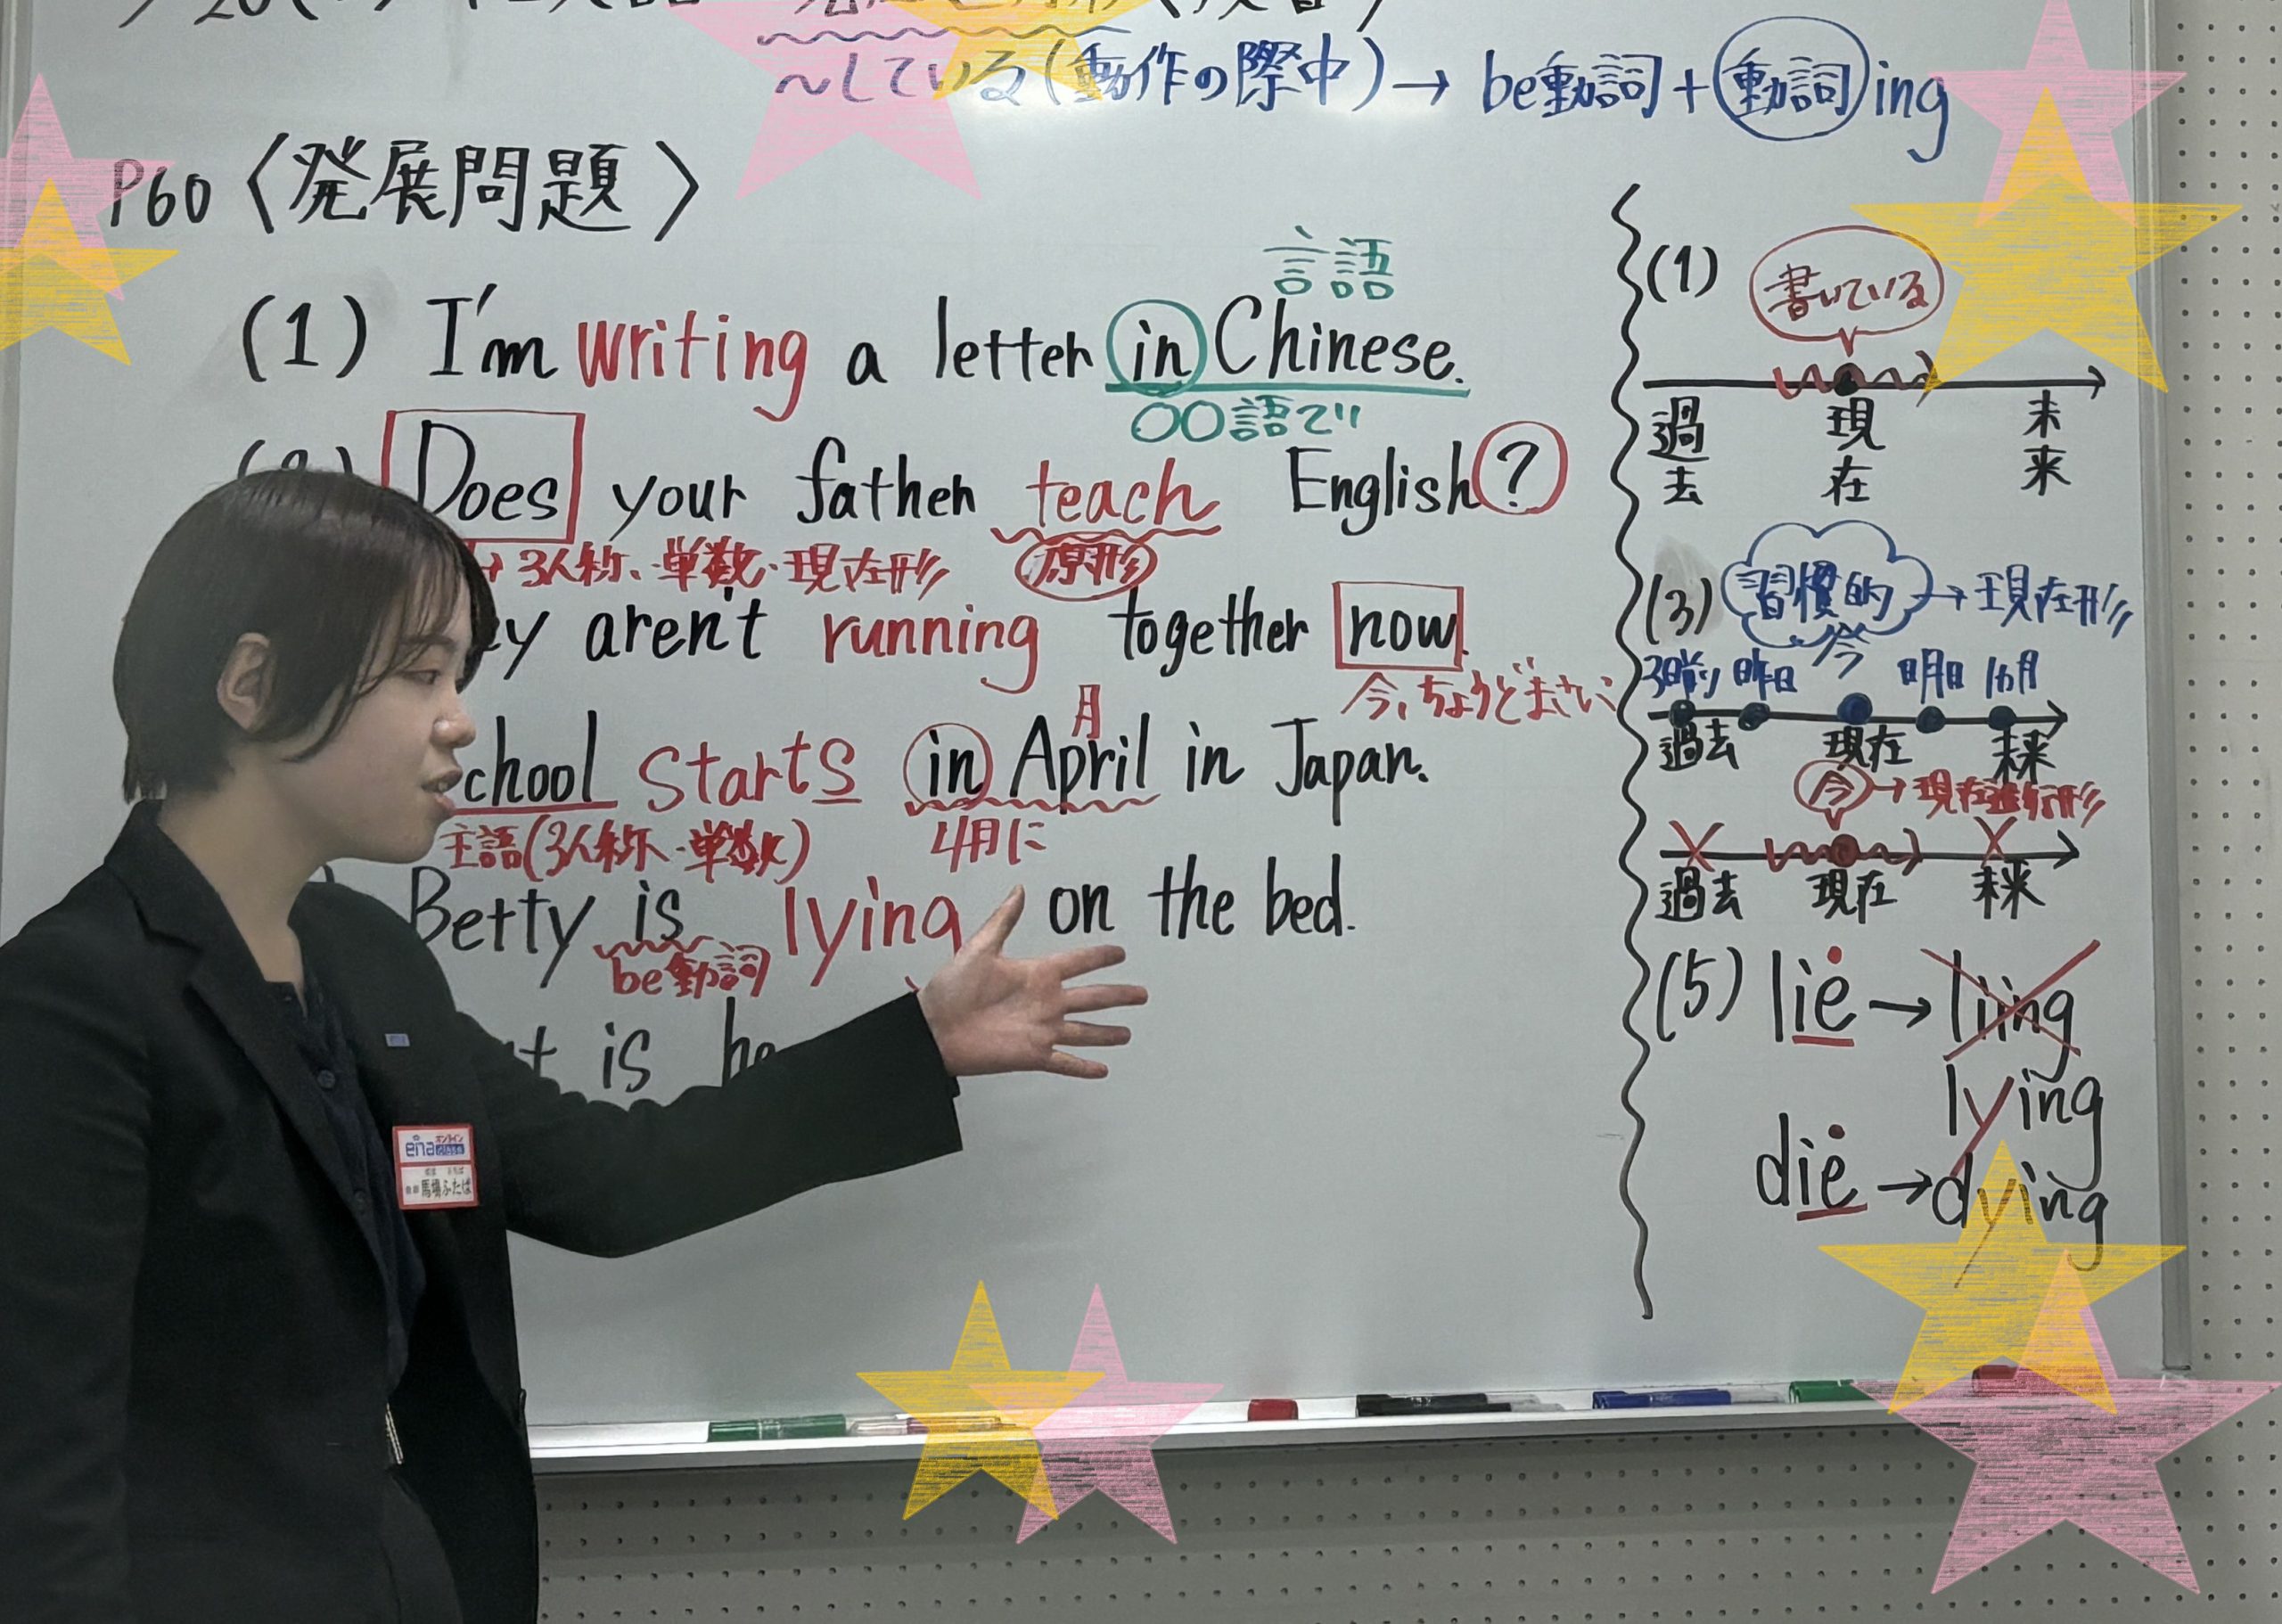 ~している(動作の際中)→ be動詞+動詞ing
P60 〈発展問題〉
言語
(1) I'm writing a letter in Chinese.
〇〇語で
Does your father teach English?
→3人称・単数・現在形 原形
aren't running together now.
今、ちょうどまさに
月
school starts in April in Japan.
主語(3人称・単数) 4月に
Betty is lying on the bed.
be動詞
is he
(1) 書いている
過去 現在 未来
(3) 習慣的 → 現在形
3日前 昨日 今 明日 1ヵ月
過去 現在 未来
今→現在進行形
過去 現在 未来
(5) lie → liing
lying
die → dying
ena オンライン class
馬場ふたば